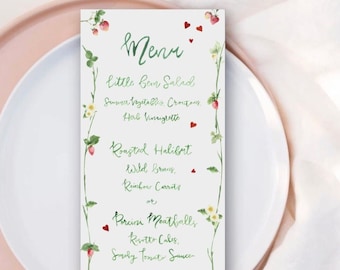 Menu
Little Gem Salad
Summer Vegetables, Croutons,
Herb Vinaigrette
Roasted Halibut
Wild Greens,
Rainbow Carrots
or
Porcini Meatballs
Risotto Cakes,
Smoky Tomato Sauce